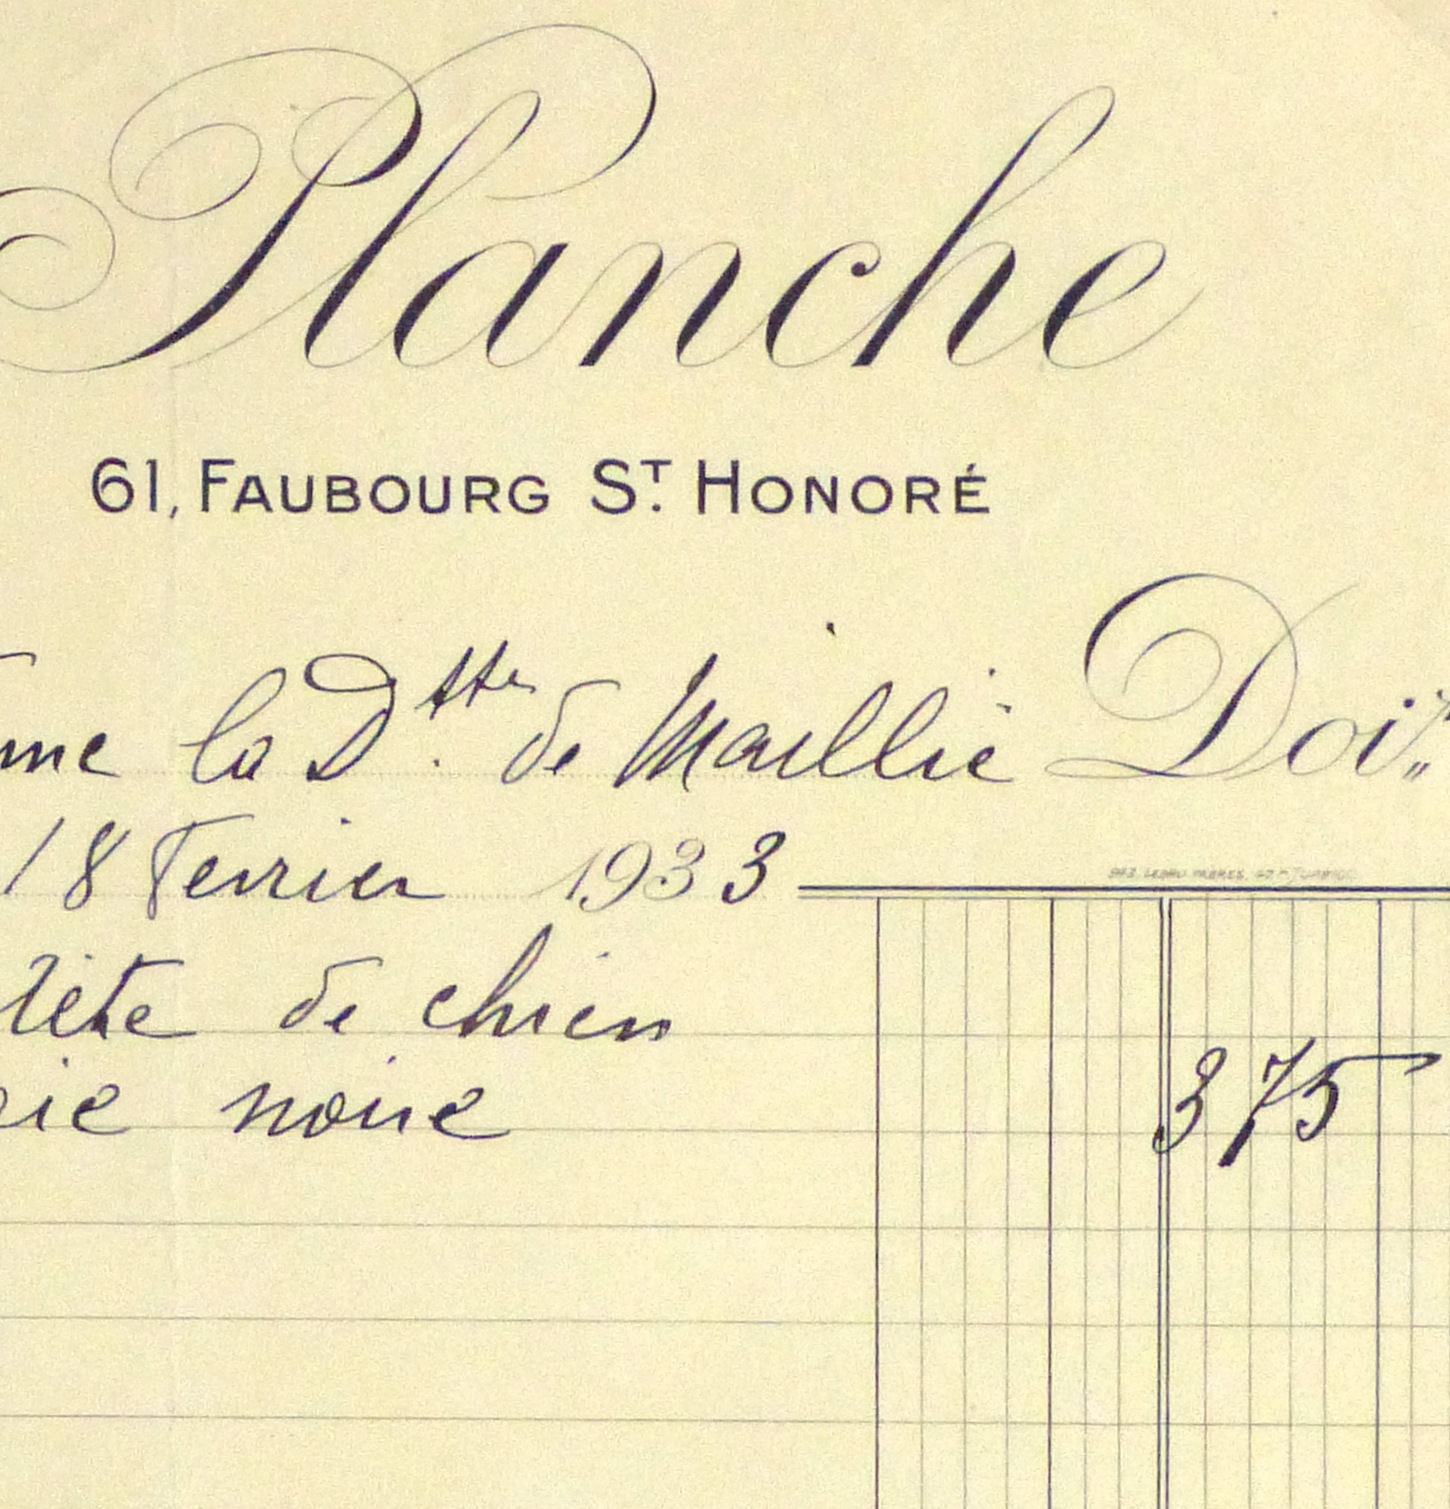 Planche
61, FAUBOURG ST. HONORÉ
me la Dtte. de Maillié Doit
18 Fevrier 1933
tête de chien
noire
375